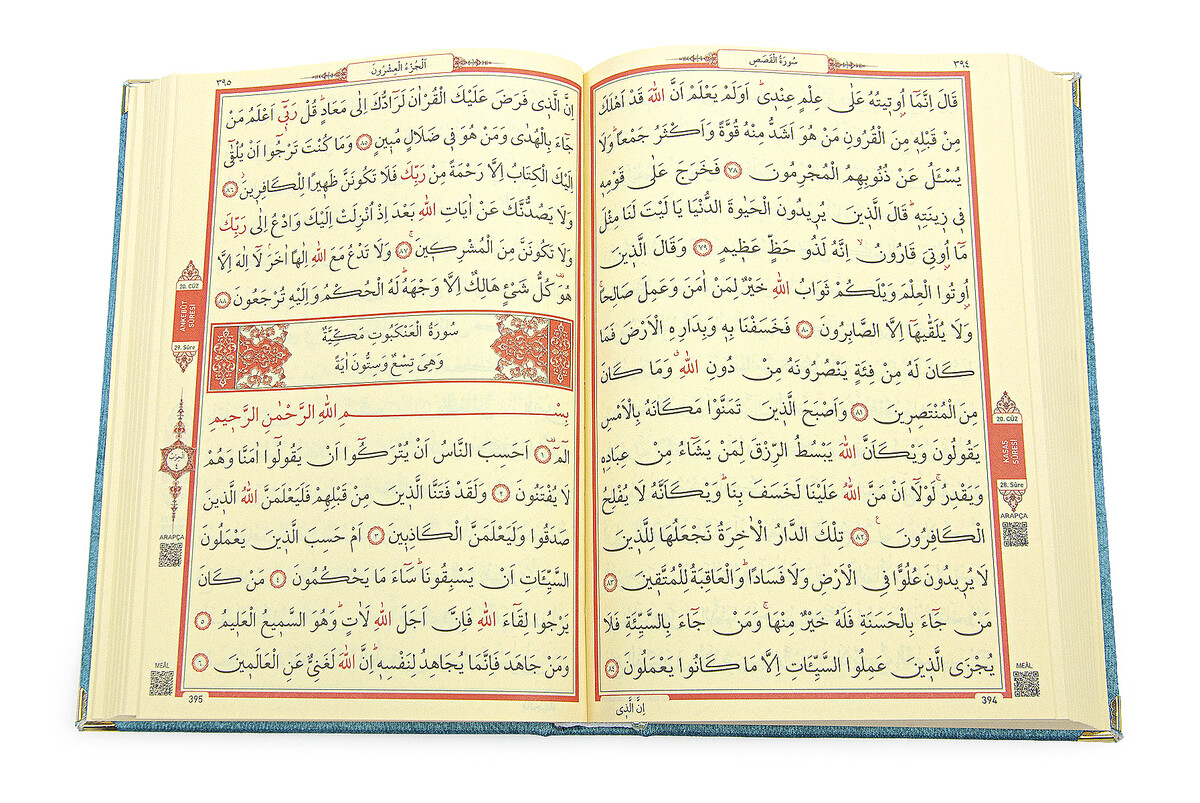 ٣٩٤
سُورَةُ الْقَصَصِ
قَالَ اِنَّمَٓا اُو۫ت۪يتُهُ عَلٰى عِلْمٍ عِنْد۪يۜ اَوَلَمْ يَعْلَمْ اَنَّ اللّٰهَ قَدْ اَهْلَكَ
مِنْ قَبْلِه۪ مِنَ الْقُرُونِ مَنْ هُوَ اَشَدُّ مِنْهُ قُوَّةً وَاَكْثَرُ جَمْعًاۜ وَلَا
يُسْـَٔلُ عَنْ ذُنُوبِهِمُ الْمُجْرِمُونَ ٧٨ فَخَرَجَ عَلٰى قَوْمِه۪
ف۪ي ز۪ينَتِه۪ۜ قَالَ الَّذ۪ينَ يُر۪يدُونَ الْحَيٰوةَ الدُّنْيَا يَا لَيْتَ لَنَا مِثْلَ
مَٓا اُو۫تِيَ قَارُونُۙ اِنَّهُ لَذُو حَظٍّ عَظ۪يمٍ ٧٩ وَقَالَ الَّذ۪ينَ
اُو۫تُوا الْعِلْمَ وَيْلَكُمْ ثَوَابُ اللّٰهِ خَيْرٌ لِمَنْ اٰمَنَ وَعَمِلَ صَالِحًاۚ
وَلَا يُلَقّٰيهَٓا اِلَّا الصَّابِرُونَ ٨٠ فَخَسَفْنَا بِه۪ وَبِدَارِهِ الْاَرْضَ فَمَا
كَانَ لَهُ مِنْ فِئَةٍ يَنْصُرُونَهُ مِنْ دُونِ اللّٰهِۗ وَمَا كَانَ
مِنَ الْمُنْتَصِر۪ينَ ٨١ وَاَصْبَحَ الَّذ۪ينَ تَمَنَّوْا مَكَانَهُ بِالْاَمْسِ
يَقُولُونَ وَيْكَاَنَّ اللّٰهَ يَبْسُطُ الرِّزْقَ لِمَنْ يَشَٓاءُ مِنْ عِبَادِه۪
وَيَقْدِرُۚ لَوْلَٓا اَنْ مَنَّ اللّٰهُ عَلَيْنَا لَخَسَفَ بِنَاۜ وَيْكَاَنَّهُ لَا يُفْلِحُ
الْكَافِرُونَ۟ ٨٢ تِلْكَ الدَّارُ الْاٰخِرَةُ نَجْعَلُهَا لِلَّذ۪ينَ
لَا يُر۪يدُونَ عُلُوًّا فِي الْاَرْضِ وَلَا فَسَادًاۜ وَالْعَاقِبَةُ لِلْمُتَّق۪ينَ ٨٣
مَنْ جَٓاءَ بِالْحَسَنَةِ فَلَهُ خَيْرٌ مِنْهَاۚ وَمَنْ جَٓاءَ بِالسَّيِّئَةِ فَلَا
يُجْزَى الَّذ۪ينَ عَمِلُوا السَّيِّـَٔاتِ اِلَّا مَا كَانُوا يَعْمَلُونَ ٨٤
20. CÜZ
KASAS
SÛRESİ
28. Sûre
ARAPÇA
MEÂL
394
اِنَّ الَّذ۪ي
٣٩٥
اَلْجُزْءُ الْعِشْرُونَ
اِنَّ الَّذ۪ي فَرَضَ عَلَيْكَ الْقُرْاٰنَ لَرَٓادُّكَ اِلٰى مَعَادٍۜ قُلْ رَبّ۪ٓي اَعْلَمُ مَنْ
جَٓاءَ بِالْهُدٰى وَمَنْ هُوَ ف۪ي ضَلَالٍ مُب۪ينٍ ٨٥ وَمَا كُنْتَ تَرْجُٓوا اَنْ يُلْقٰٓى
اِلَيْكَ الْكِتَابُ اِلَّا رَحْمَةً مِنْ رَبِّكَ فَلَا تَكُونَنَّ ظَه۪يرًا لِلْكَافِر۪ينَۘ ٨٦
وَلَا يَصُدُّنَّكَ عَنْ اٰيَاتِ اللّٰهِ بَعْدَ اِذْ اُنْزِلَتْ اِلَيْكَ وَادْعُ اِلٰى رَبِّكَ
وَلَا تَكُونَنَّ مِنَ الْمُشْرِك۪ينَۚ ٨٧ وَلَا تَدْعُ مَعَ اللّٰهِ اِلٰهًا اٰخَرَۢ لَٓا اِلٰهَ اِلَّا
هُوَ۠ كُلُّ شَيْءٍ هَالِكٌ اِلَّا وَجْهَهُۜ لَهُ الْحُكْمُ وَاِلَيْهِ تُرْجَعُونَ ٨٨
سُورَةُ الْعَنْكَبُوتِ مَكِّيَّةٌ
وَهِيَ تِسْعٌ وَسِتُّونَ اٰيَةً
بِسْمِ اللّٰهِ الرَّحْمٰنِ الرَّح۪يمِ
الٓمٓ۠ ١ اَحَسِبَ النَّاسُ اَنْ يُتْرَكُٓوا اَنْ يَقُولُٓوا اٰمَنَّا وَهُمْ
لَا يُفْتَنُونَ ٢ وَلَقَدْ فَتَنَّا الَّذ۪ينَ مِنْ قَبْلِهِمْ فَلَيَعْلَمَنَّ اللّٰهُ الَّذ۪ينَ
صَدَقُوا وَلَيَعْلَمَنَّ الْكَاذِب۪ينَ ٣ اَمْ حَسِبَ الَّذ۪ينَ يَعْمَلُونَ
السَّيِّـَٔاتِ اَنْ يَسْبِقُونَاۜ سَٓاءَ مَا يَحْكُمُونَ ٤ مَنْ كَانَ
يَرْجُوا لِقَٓاءَ اللّٰهِ فَاِنَّ اَجَلَ اللّٰهِ لَاٰتٍۜ وَهُوَ السَّم۪يعُ الْعَل۪يمُ ٥
وَمَنْ جَاهَدَ فَاِنَّمَا يُجَاهِدُ لِنَفْسِه۪ۜ اِنَّ اللّٰهَ لَغَنِيٌّ عَنِ الْعَالَم۪ينَ ٦
20. CÜZ
ANKEBÛT
SÛRESİ
29. Sûre
اَلْحِزْبُ
٤
ARAPÇA
MEÂL
395